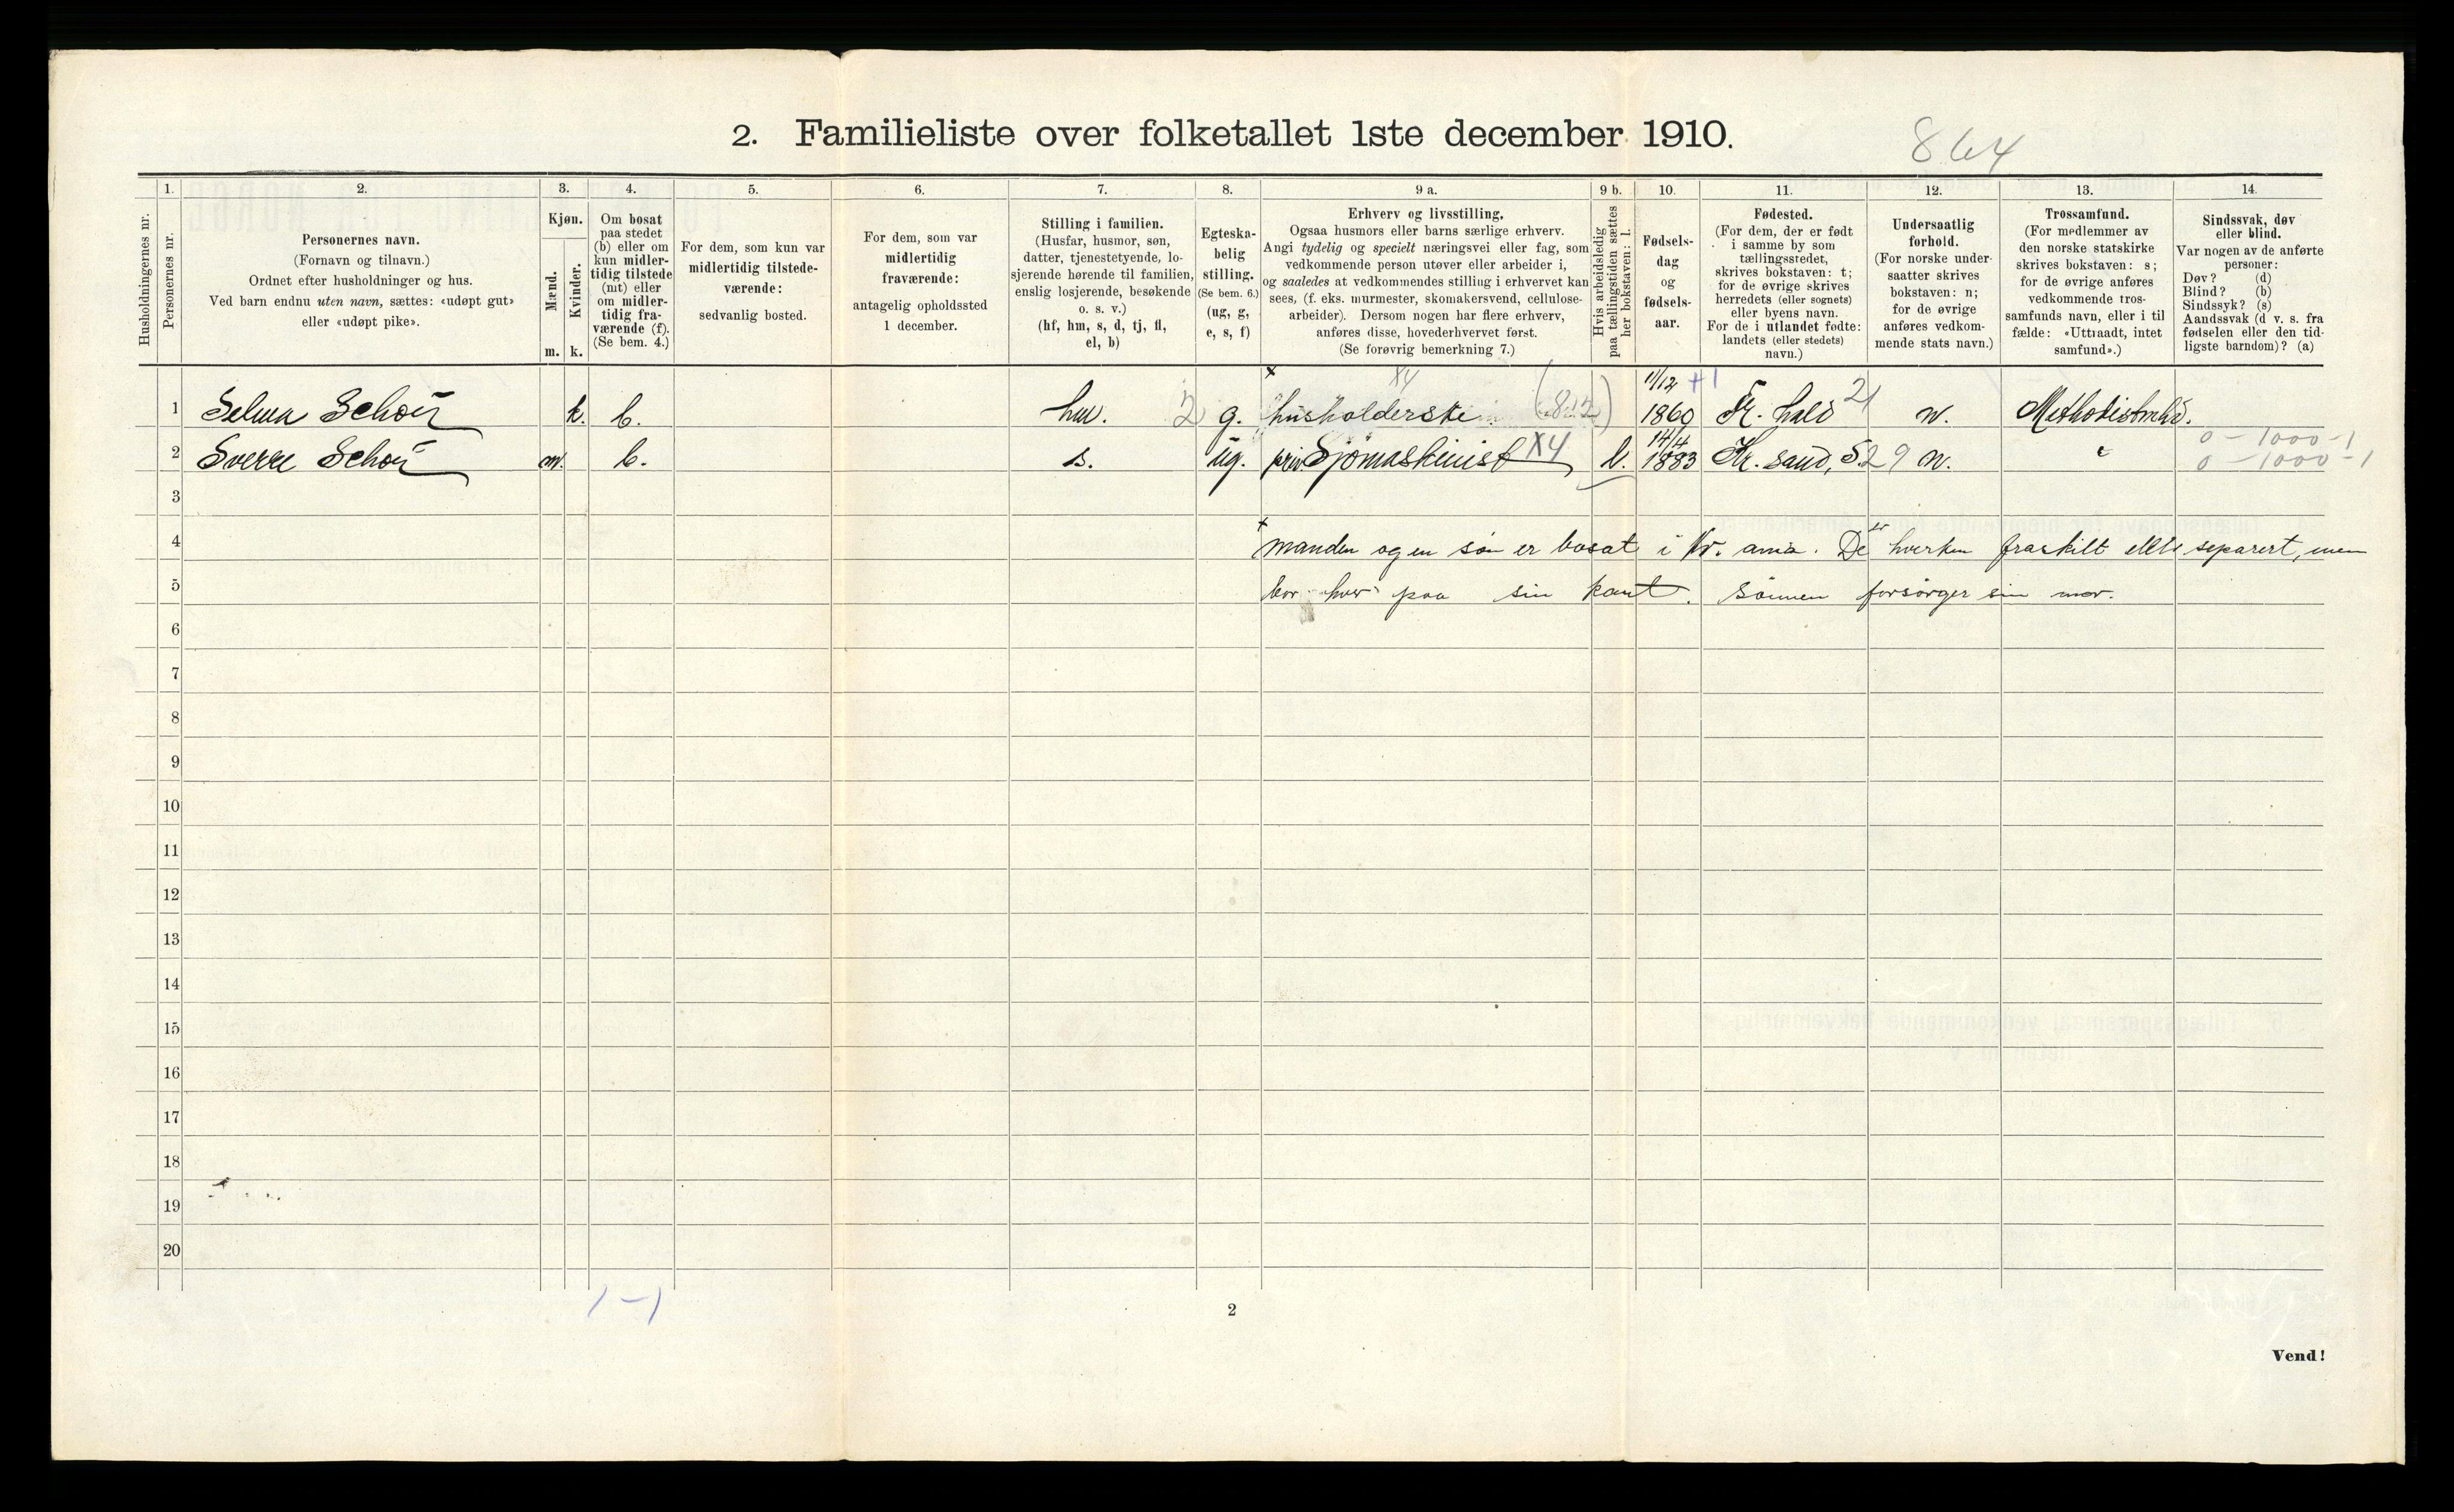 2. Familieliste over folketallet 1ste december 1910.
864
Husholdningernes nr.
1.
Personernes nr.
2.
Personernes navn.
(Fornavn og tilnavn.)
Ordnet efter husholdninger og hus.
Ved barn endnu uten navn, sættes: «udøpt gut»
eller «udøpt pike».
3.
Kjøn.
Mænd.
Kvinder.
m. k.
4.
Om bosat
paa stedet
(b) eller om
kun midler-
tidig tilstede
(mt) eller
om midler-
tidig fra-
værende (f).
(Se bem. 4.)
5.
For dem, som kun var
midlertidig tilstede-
værende:
sedvanlig bosted.
6.
For dem, som var
midlertidig
fraværende:
antagelig opholdssted
1 december.
7.
Stilling i familien.
(Husfar, husmor, søn,
datter, tjenestetyende, lo-
sjerende hørende til familien,
enslig losjerende, besøkende
o. s. v.)
(hf, hm, s, d, tj, fl,
el, b)
8.
Egteska-
belig
stilling.
(Se bem. 6.)
(ug, g,
e, s, f)
9 a.
Erhverv og livsstilling.
Ogsaa husmors eller barns særlige erhverv.
Angi tydelig og specielt næringsvei eller fag, som
vedkommende person utøver eller arbeider i,
og saaledes at vedkommendes stilling i erhvervet kan
sees, (f. eks. murmester, skomakersvend, cellulose-
arbeider). Dersom nogen har flere erhverv,
anføres disse, hovederhvervet først.
(Se forøvrig bemerkning 7.)
9 b.
Hvis arbeidsledig
paa tællingstiden sættes
her bokstaven: l.
10.
Fødsels-
dag
og
fødsels-
aar.
11.
Fødested.
(For dem, der er født
i samme by som
tællingsstedet,
skrives bokstaven: t;
for de øvrige skrives
herredets (eller sognets)
eller byens navn.
For de i utlandet fødte:
landets (eller stedets)
navn.)
12.
Undersaatlig
forhold.
(For norske under-
saatter skrives
bokstaven: n;
for de øvrige
anføres vedkom-
mende stats navn.)
13.
Trossamfund.
(For medlemmer av
den norske statskirke
skrives bokstaven: s;
for de øvrige anføres
vedkommende tros-
samfunds navn, eller i til
fælde: «Uttraadt, intet
samfund».)
14.
Sindssvak, døv
eller blind.
Var nogen av de anførte
personer:
Døv? (d)
Blind? (b)
Sindssyk? (s)
Aandssvak (d v. s. fra
fødselen eller den tid-
ligste barndom)? (a)
x X4 11/12 +1
1 Selma k. b. hm. 2 g. husholderske 1860 Fr. hald 21 n.
0 - 1000 - 1
2 Sverre m. b. s. ug. priv Sjömaskinist X4 l. 14/4 1883 Kr. sand, S. 29 n. "
0 - 1000 - 1
3
4 x manden og en søn er bosat i Kr. ania. De er hverken fraskilt eller separert, men
5 bor hver paa sin kant. Sönnen forsörger sin mor.
6
7
8
9
10
11
12
13
14
15
16
17
18
19
20
1 - 1
2
Vend!